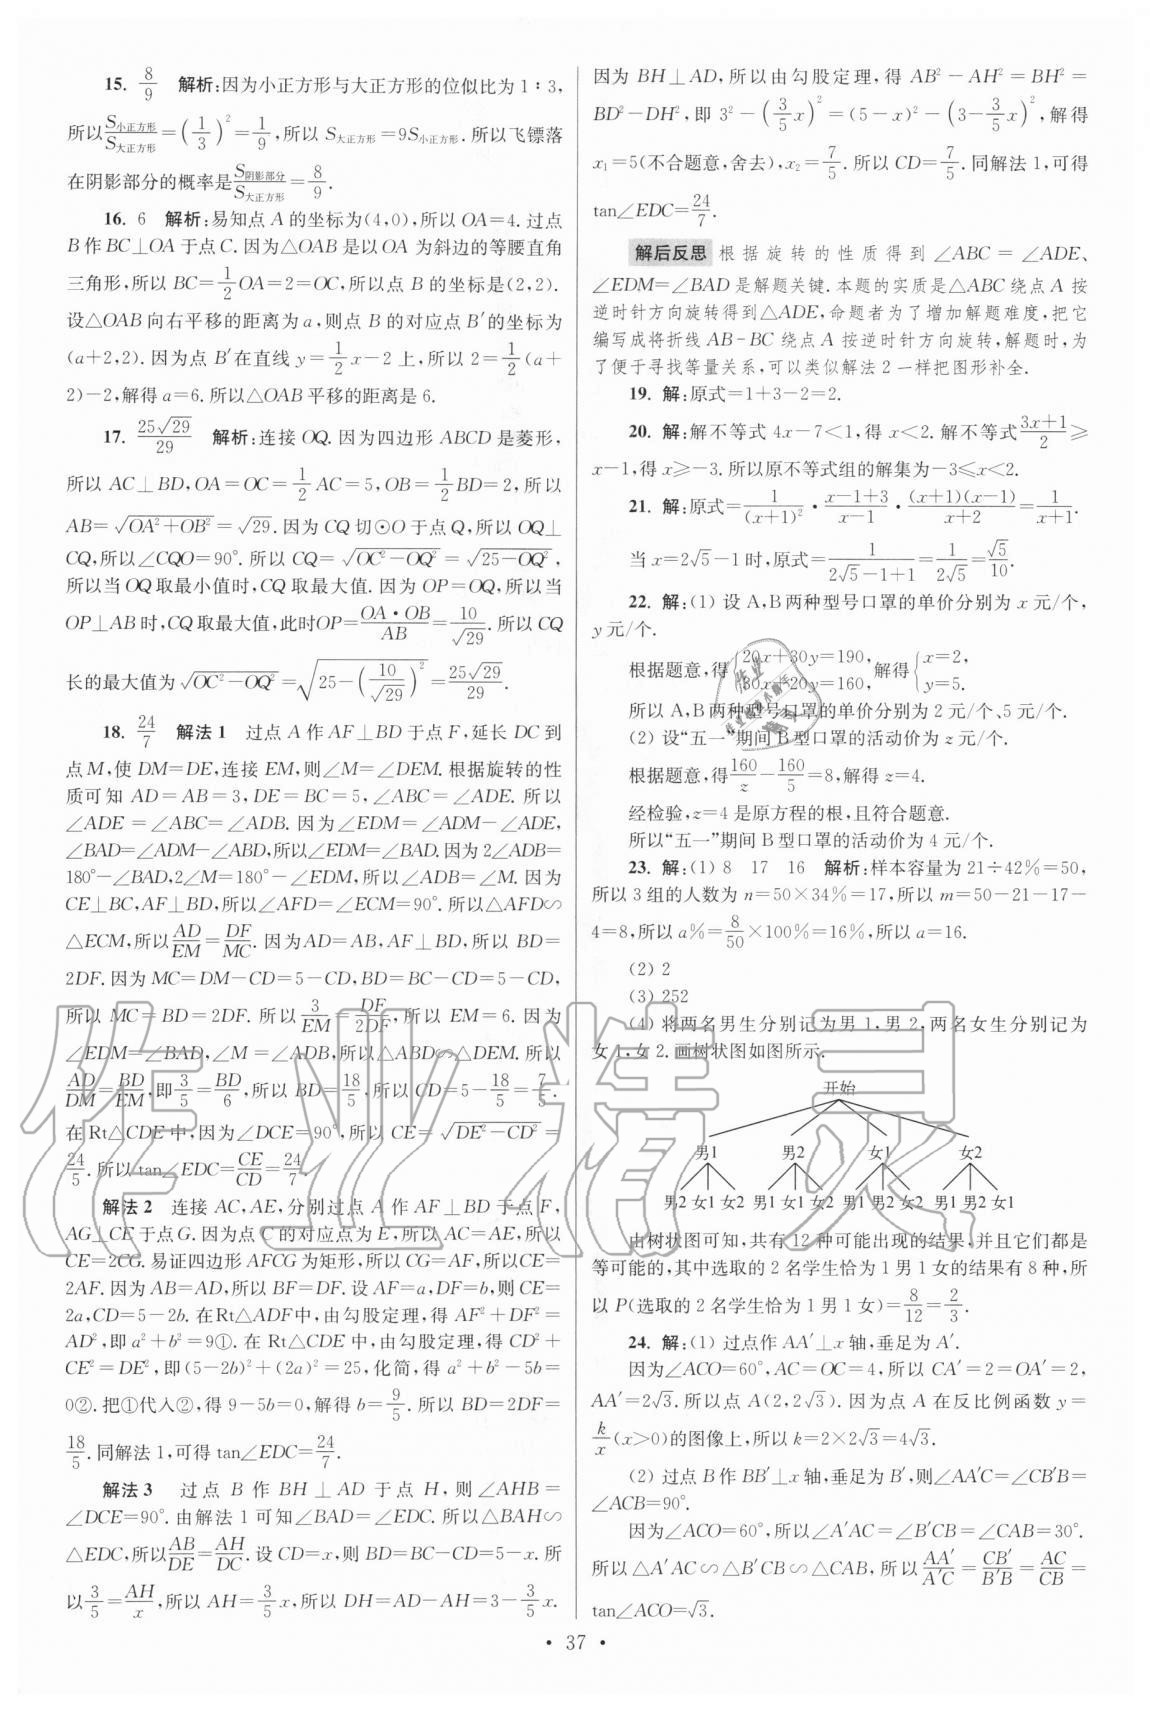 15. 8/9 解析:因为小正方形与大正方形的位似比为1∶3,
所以S小正方形/S大正方形=(1/3)²=1/9,所以 S大正方形=9S小正方形. 所以飞镖落
在阴影部分的概率是S阴影部分/S大正方形=8/9.
16. 6 解析:易知点 A 的坐标为(4,0),所以 OA=4. 过点
B 作 BC⊥OA 于点 C. 因为△OAB 是以 OA 为斜边的等腰直角
三角形,所以 BC=1/2OA=2=OC,所以点 B 的坐标是(2,2).
设△OAB 向右平移的距离为 a,则点 B 的对应点 B′的坐标为
(a+2,2). 因为点 B′在直线 y=1/2x-2 上,所以 2=1/2(a+
2)-2,解得 a=6. 所以△OAB 平移的距离是 6.
17. 25√29/29 解析:连接 OQ. 因为四边形 ABCD 是菱形,
所以 AC⊥BD,OA=OC=1/2AC=5,OB=1/2BD=2,所以
AB=√(OA²+OB²)=√29. 因为 CQ 切⊙O 于点 Q,所以 OQ⊥
CQ,所以∠CQO=90°. 所以 CQ=√(OC²-OQ²)=√(25-OQ²),
所以当 OQ 取最小值时,CQ 取最大值. 因为 OP=OQ,所以当
OP⊥AB 时,CQ 取最大值,此时OP=OA·OB/AB=10/√29. 所以 CQ
长的最大值为√(OC²-OQ²)=√(25-(10/√29)²)=25√29/29.
18. 24/7 解法 1 过点 A 作 AF⊥BD 于点 F,延长 DC 到
点 M,使 DM=DE,连接 EM,则∠M=∠DEM. 根据旋转的性
质可知 AD=AB=3,DE=BC=5,∠ABC=∠ADE. 所以
∠ADE=∠ABC=∠ADB. 因为∠EDM=∠ADM-∠ADE,
∠BAD=∠ADM-∠ABD,所以∠EDM=∠BAD. 因为 2∠ADB=
180°-∠BAD,2∠M=180°-∠EDM,所以∠ADB=∠M. 因为
CE⊥BC,AF⊥BD,所以∠AFD=∠ECM=90°. 所以△AFD∽
△ECM,所以AD/EM=DF/MC. 因为AD=AB,AF⊥BD,所以 BD=
2DF. 因为 MC=DM-CD=5-CD,BD=BC-CD=5-CD,
所以 MC=BD=2DF. 所以3/EM=DF/2DF,所以 EM=6. 因为
∠EDM=∠BAD,∠M=∠ADB,所以△ABD∽△DEM. 所以
AD/DM=BD/EM,即3/5=BD/6,所以 BD=18/5,所以 CD=5-18/5=7/5.
在 Rt△CDE 中,因为∠DCE=90°,所以 CE=√(DE²-CD²)=
24/5. 所以 tan∠EDC=CE/CD=24/7.
解法 2 连接 AC,AE,分别过点 A 作 AF⊥BD 于点 F,
AG⊥CE 于点 G. 因为点 C 的对应点为 E,所以 AC=AE,所以
CE=2CG. 易证四边形 AFCG 为矩形,所以 CG=AF,所以CE=
2AF. 因为 AB=AD,所以 BF=DF. 设 AF=a,DF=b,则 CE=
2a,CD=5-2b. 在Rt△ADF中,由勾股定理,得 AF²+DF²=
AD²,即 a²+b²=9①. 在 Rt△CDE 中,由勾股定理,得 CD²+
CE²=DE²,即(5-2b)²+(2a)²=25,化简,得 a²+b²-5b=
0②. 把①代入②,得 9-5b=0,解得 b=9/5. 所以 BD=2DF=
18/5. 同解法 1,可得 tan∠EDC=24/7.
解法 3 过点 B 作 BH⊥AD 于点 H,则∠AHB=
∠DCE=90°. 由解法 1 可知∠BAD=∠EDC. 所以△BAH∽
△EDC,所以AB/DE=AH/DC. 设 CD=x,则 BD=BC-CD=5-x. 所
以3/5=AH/x,所以 AH=3/5x,所以 DH=AD-AH=3-3/5x.
因为 BH⊥AD,所以由勾股定理,得 AB²-AH²=BH²=
BD²-DH²,即 3²-(3/5x)²=(5-x)²-(3-3/5x)²,解得
x₁=5(不合题意,舍去),x₂=7/5. 所以 CD=7/5. 同解法 1,可得
tan∠EDC=24/7.
解后反思 根据旋转的性质得到∠ABC=∠ADE、
∠EDM=∠BAD 是解题关键. 本题的实质是△ABC 绕点 A 按
逆时针方向旋转得到△ADE,命题者为了增加解题难度,把它
编写成将折线 AB-BC 绕点 A 按逆时针方向旋转,解题时,为
了便于寻找等量关系,可以类似解法 2 一样把图形补全.
19. 解:原式=1+3-2=2.
20. 解:解不等式 4x-7<1,得 x<2. 解不等式(3x+1)/2≥
x-1,得 x≥-3. 所以原不等式组的解集为-3≤x<2.
21. 解:原式=1/(x+1)²·(x-1+3)/(x-1)·(x+1)(x-1)/(x+2)=1/(x+1).
当 x=2√5-1时,原式=1/(2√5-1+1)=1/(2√5)=√5/10.
22. 解:(1) 设 A,B 两种型号口罩的单价分别为 x 元/个,
y 元/个.
根据题意,得{20x+30y=190,30x+20y=160,解得{x=2,y=5.
所以 A,B 两种型号口罩的单价分别为 2 元/个、5 元/个.
(2) 设“五一”期间 B 型口罩的活动价为 z 元/个.
根据题意,得160/z-160/5=8,解得 z=4.
经检验,z=4 是原方程的根,且符合题意.
所以“五一”期间 B 型口罩的活动价为 4 元/个.
23. 解:(1) 8 17 16 解析:样本容量为 21÷42%=50,
所以 3 组的人数为 n=50×34%=17,所以 m=50-21-17-
4=8,所以 a%=8/50×100%=16%,所以 a=16.
(2) 2
(3) 252
(4) 将两名男生分别记为男 1,男 2,两名女生分别记为
女 1,女 2. 画树状图如图所示.
开始
男1 男2 女1 女2
男2 女1 女2 男1 女1 女2 男1 男2 女2 男1 男2 女1
由树状图可知,共有 12 种可能出现的结果,并且它们都是
等可能的,其中选取的 2 名学生恰为 1 男 1 女的结果有 8 种,所
以 P(选取的 2 名学生恰为 1 男 1 女)=8/12=2/3.
24. 解:(1) 过点作 AA′⊥x 轴,垂足为 A′.
因为∠ACO=60°,AC=OC=4,所以 CA′=2=OA′=2,
AA′=2√3. 所以点 A(2,2√3). 因为点 A 在反比例函数 y=
k/x(x>0)的图像上,所以 k=2×2√3=4√3.
(2) 过点 B 作 BB′⊥x 轴,垂足为 B′,则∠AA′C=∠CB′B=
∠ACB=90°.
因为∠ACO=60°,所以∠A′AC=∠B′CB=∠CAB=30°.
所以△A′AC∽△B′CB∽△CAB,所以AA′/A′C=CB′/B′B=AC/CB=
tan∠ACO=√3.
· 37 ·
作业精灵